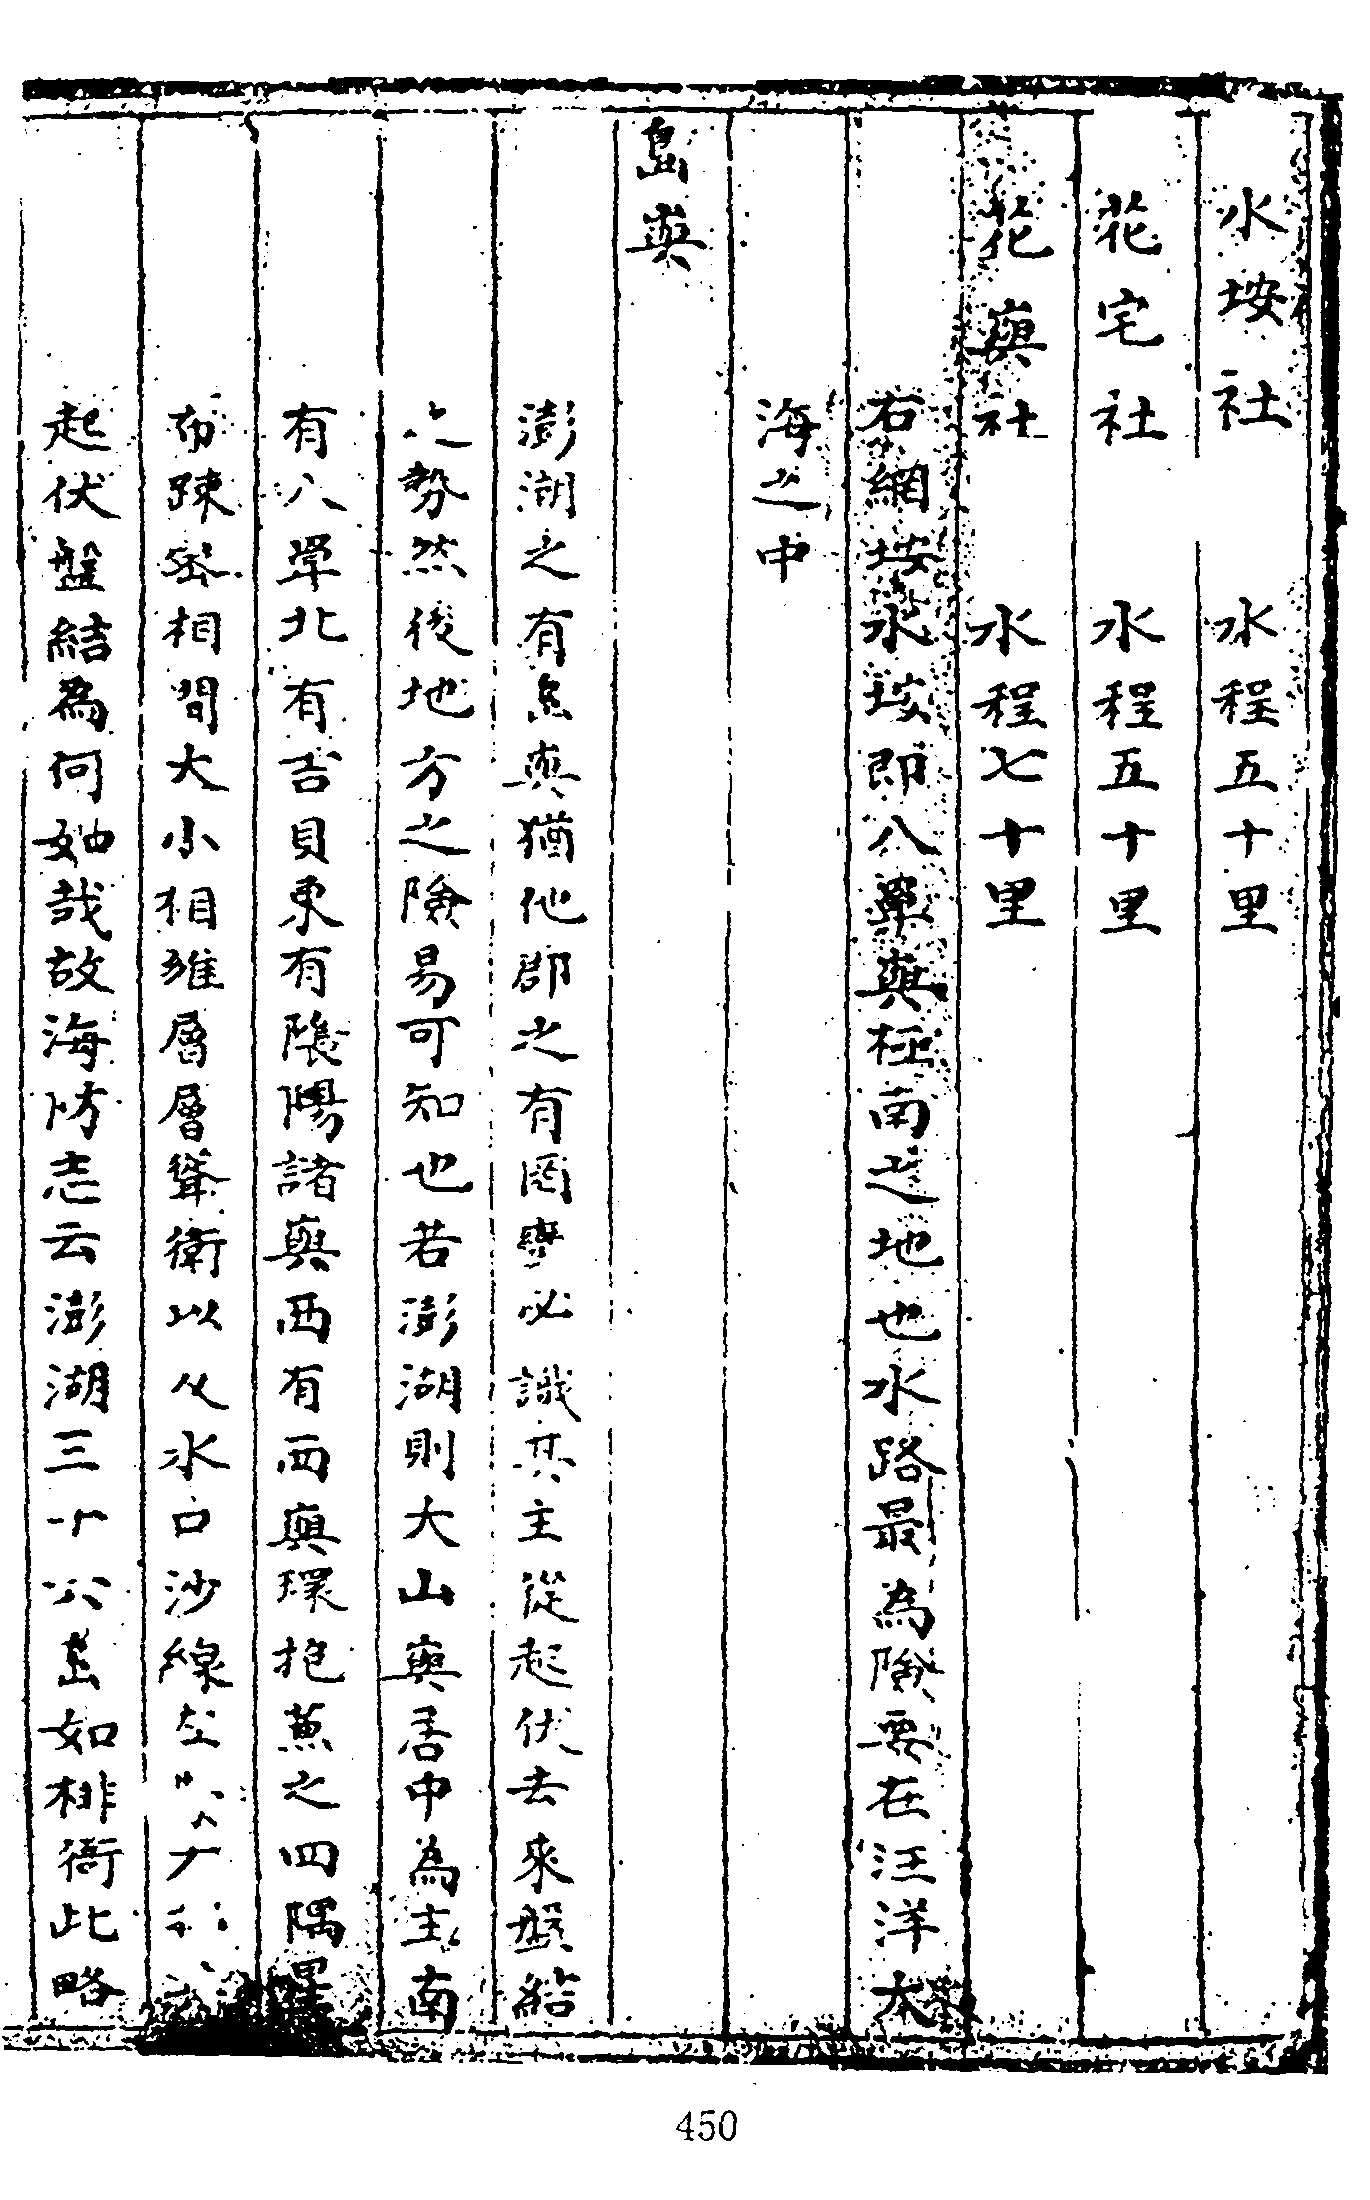 水垵社　水程五十里
花宅社　水程五十里
花嶼社　水程七十里
右網垵水垵即八罩嶼極南之地也水路最為險要在汪洋大
海之中
島嶼
澎湖之有島嶼猶他郡之有岡巒必識其主從起伏去來盤結
之勢然後地方之險易可知也若澎湖則大山嶼居中為主南
有八罩北有吉貝東有陰陽諸嶼西有西嶼環抱蕉之四隅星
布疎密相間大小相維層層聳衛以及水口沙線左
起伏盤結為何如哉故海防志云澎湖三十六島如排衙此略
450